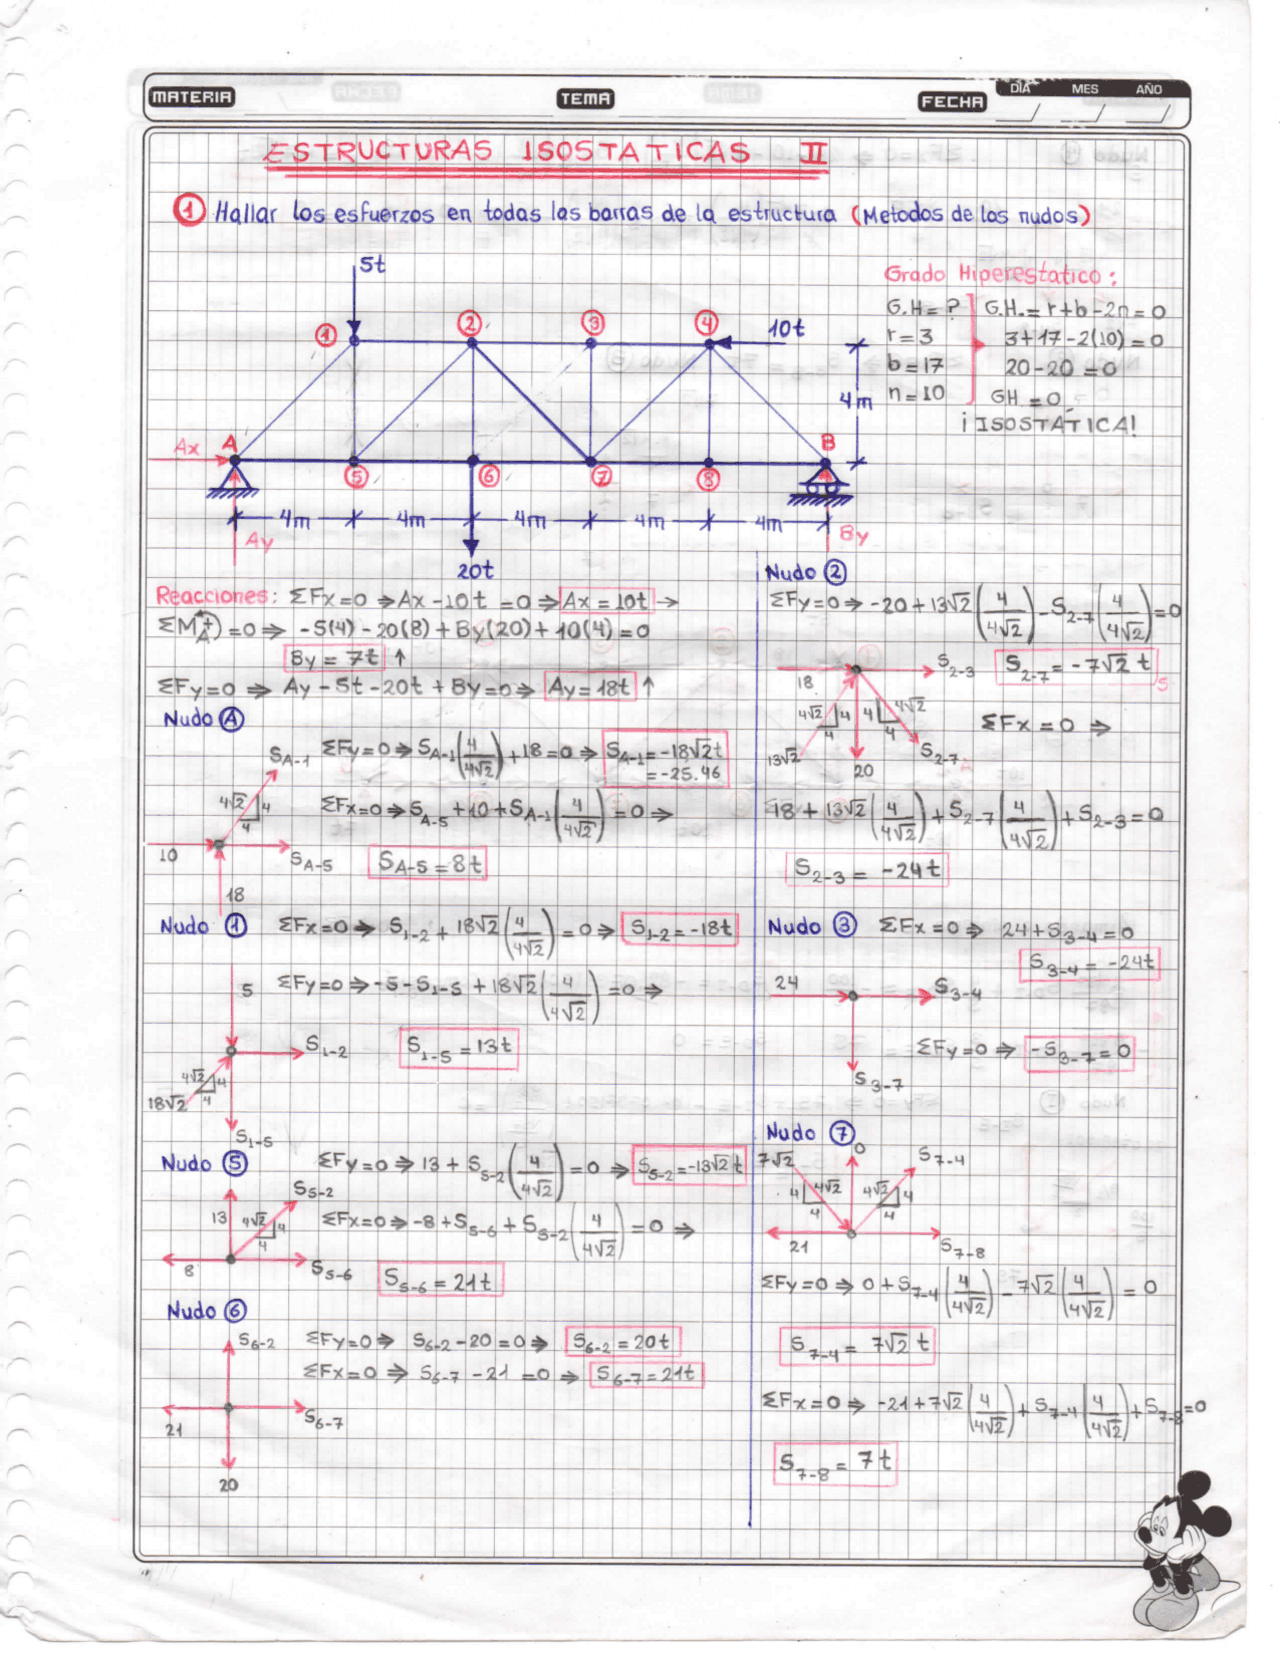 MATERIA TEMA FECHA DIA MES AÑO
ESTRUCTURAS ISOSTATICAS II
① Hallar los esfuerzos en todas las barras de la estructura (Metodos de los nudos)
5t
① ② ③ ④ 10t
4m
Ax A B
⑤ ⑥ ⑦ ⑧
4m 4m 4m 4m 4m
Ay By
20t
Grado Hiperestatico:
G.H = ? G.H. = r+b-2n = 0
r = 3 3+17-2(10) = 0
b = 17 20-20 = 0
n = 10 GH = 0
¡ISOSTÁTICA!
Reacciones: ΣFx=0 ⇒ Ax-10t = 0 ⇒ Ax = 10t →
ΣM_A^+) = 0 ⇒ -5(4) - 20(8) + By(20) + 10(4) = 0
By = 7t ↑
ΣFy=0 ⇒ Ay - 5t - 20t + By = 0 ⇒ Ay = 18t ↑
Nudo Ⓐ
ΣFy=0 ⇒ S_A-1 (4/4√2) + 18 = 0 ⇒ S_A-1 = -18√2t
= -25.46
ΣFx=0 ⇒ S_A-5 + 10 + S_A-1 (4/4√2) = 0 ⇒
S_A-5 = 8t
S_A-1
4√2 4
4
10 S_A-5
18
Nudo ① ΣFx=0 ⇒ S_1-2 + 18√2 (4/4√2) = 0 ⇒ S_1-2 = -18t
ΣFy=0 ⇒ -5 - S_1-5 + 18√2 (4/4√2) = 0 ⇒
S_1-5 = 13t
5
S_1-2
4√2 4
4
18√2
S_1-5
Nudo ⑤ ΣFy=0 ⇒ 13 + S_5-2 (4/4√2) = 0 ⇒ S_5-2 = -13√2 t
ΣFx=0 ⇒ -8 + S_5-6 + S_5-2 (4/4√2) = 0 ⇒
S_5-6 = 21t
S_5-2
13 4√2 4
4
8 S_5-6
Nudo ⑥
ΣFy=0 ⇒ S_6-2 - 20 = 0 ⇒ S_6-2 = 20t
ΣFx=0 ⇒ S_6-7 - 21 = 0 ⇒ S_6-7 = 21t
S_6-2
21 S_6-7
20
Nudo ②
ΣFy=0 ⇒ -20 + 13√2 (4/4√2) - S_2-7 (4/4√2) = 0
S_2-7 = -7√2 t
S_2-3
18
4√2 4 4 4√2
4 4
13√2 S_2-7
20
ΣFx = 0 ⇒
18 + 13√2 (4/4√2) + S_2-7 (4/4√2) + S_2-3 = 0
S_2-3 = -24t
Nudo ③ ΣFx=0 ⇒ 24 + S_3-4 = 0
S_3-4 = -24t
24 S_3-4
ΣFy=0 ⇒ -S_3-7 = 0
S_3-7
Nudo ⑦
7√2 0 S_7-4
4 4√2 4√2 4
4 4
21 S_7-8
ΣFy=0 ⇒ 0 + S_7-4 (4/4√2) - 7√2 (4/4√2) = 0
S_7-4 = 7√2 t
ΣFx=0 ⇒ -21 + 7√2 (4/4√2) + S_7-4 (4/4√2) + S_7-8 = 0
S_7-8 = 7t